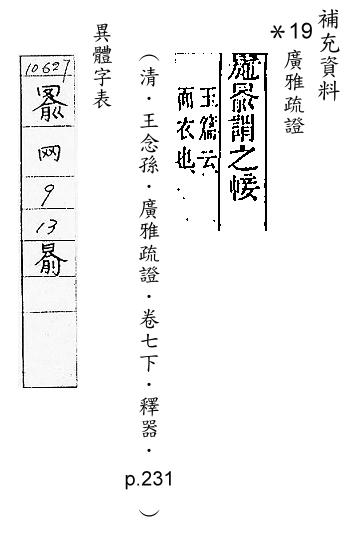 補充資料
*19 廣雅疏證
謂之帹
玉篇云
面衣也
(清.王念孫.廣雅疏證.卷七下.釋器.p.231)
異體字表
10627
网
9
13